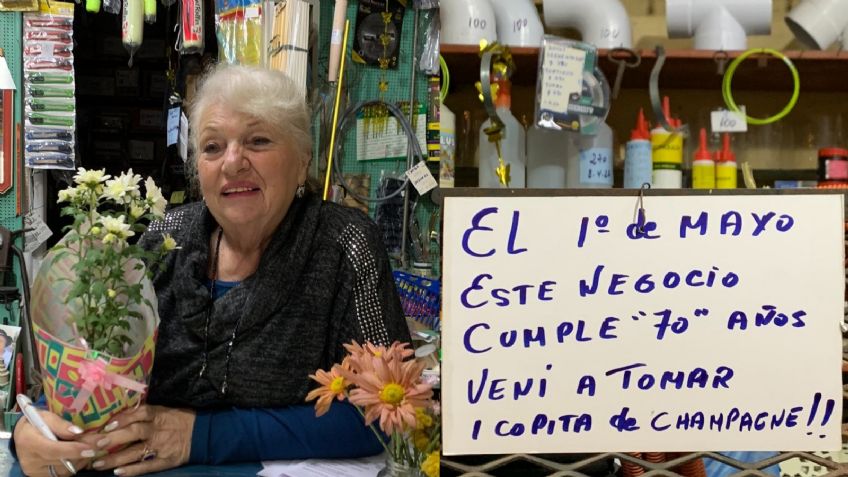 100
100
100
270
EL 1º de MAYO
ESTE NEGOCIO
CUMPLE "70" AÑOS
VENI A TOMAR
1 COPITA de CHAMPAGNE!!